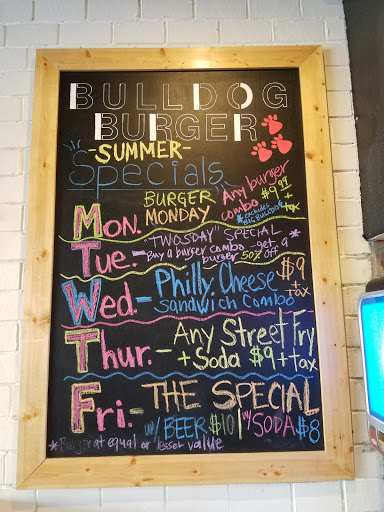 BULLDOG
BURGER
-SUMMER-
Specials
Mon. BURGER MONDAY Any burger combo $9.99 + tax
*excludes BIG BULLDOG
Tue.- "TWOSDAY" SPECIAL
Buy a burger combo - get a * burger 50% off
Wed.- Philly Cheese $9 + tax
Sandwich Combo
Thur.- Any Street Fry
+ Soda $9 + tax
Fri.- THE SPECIAL
w/ BEER $10 | w/ SODA $8
*Burger at equal or lesser value